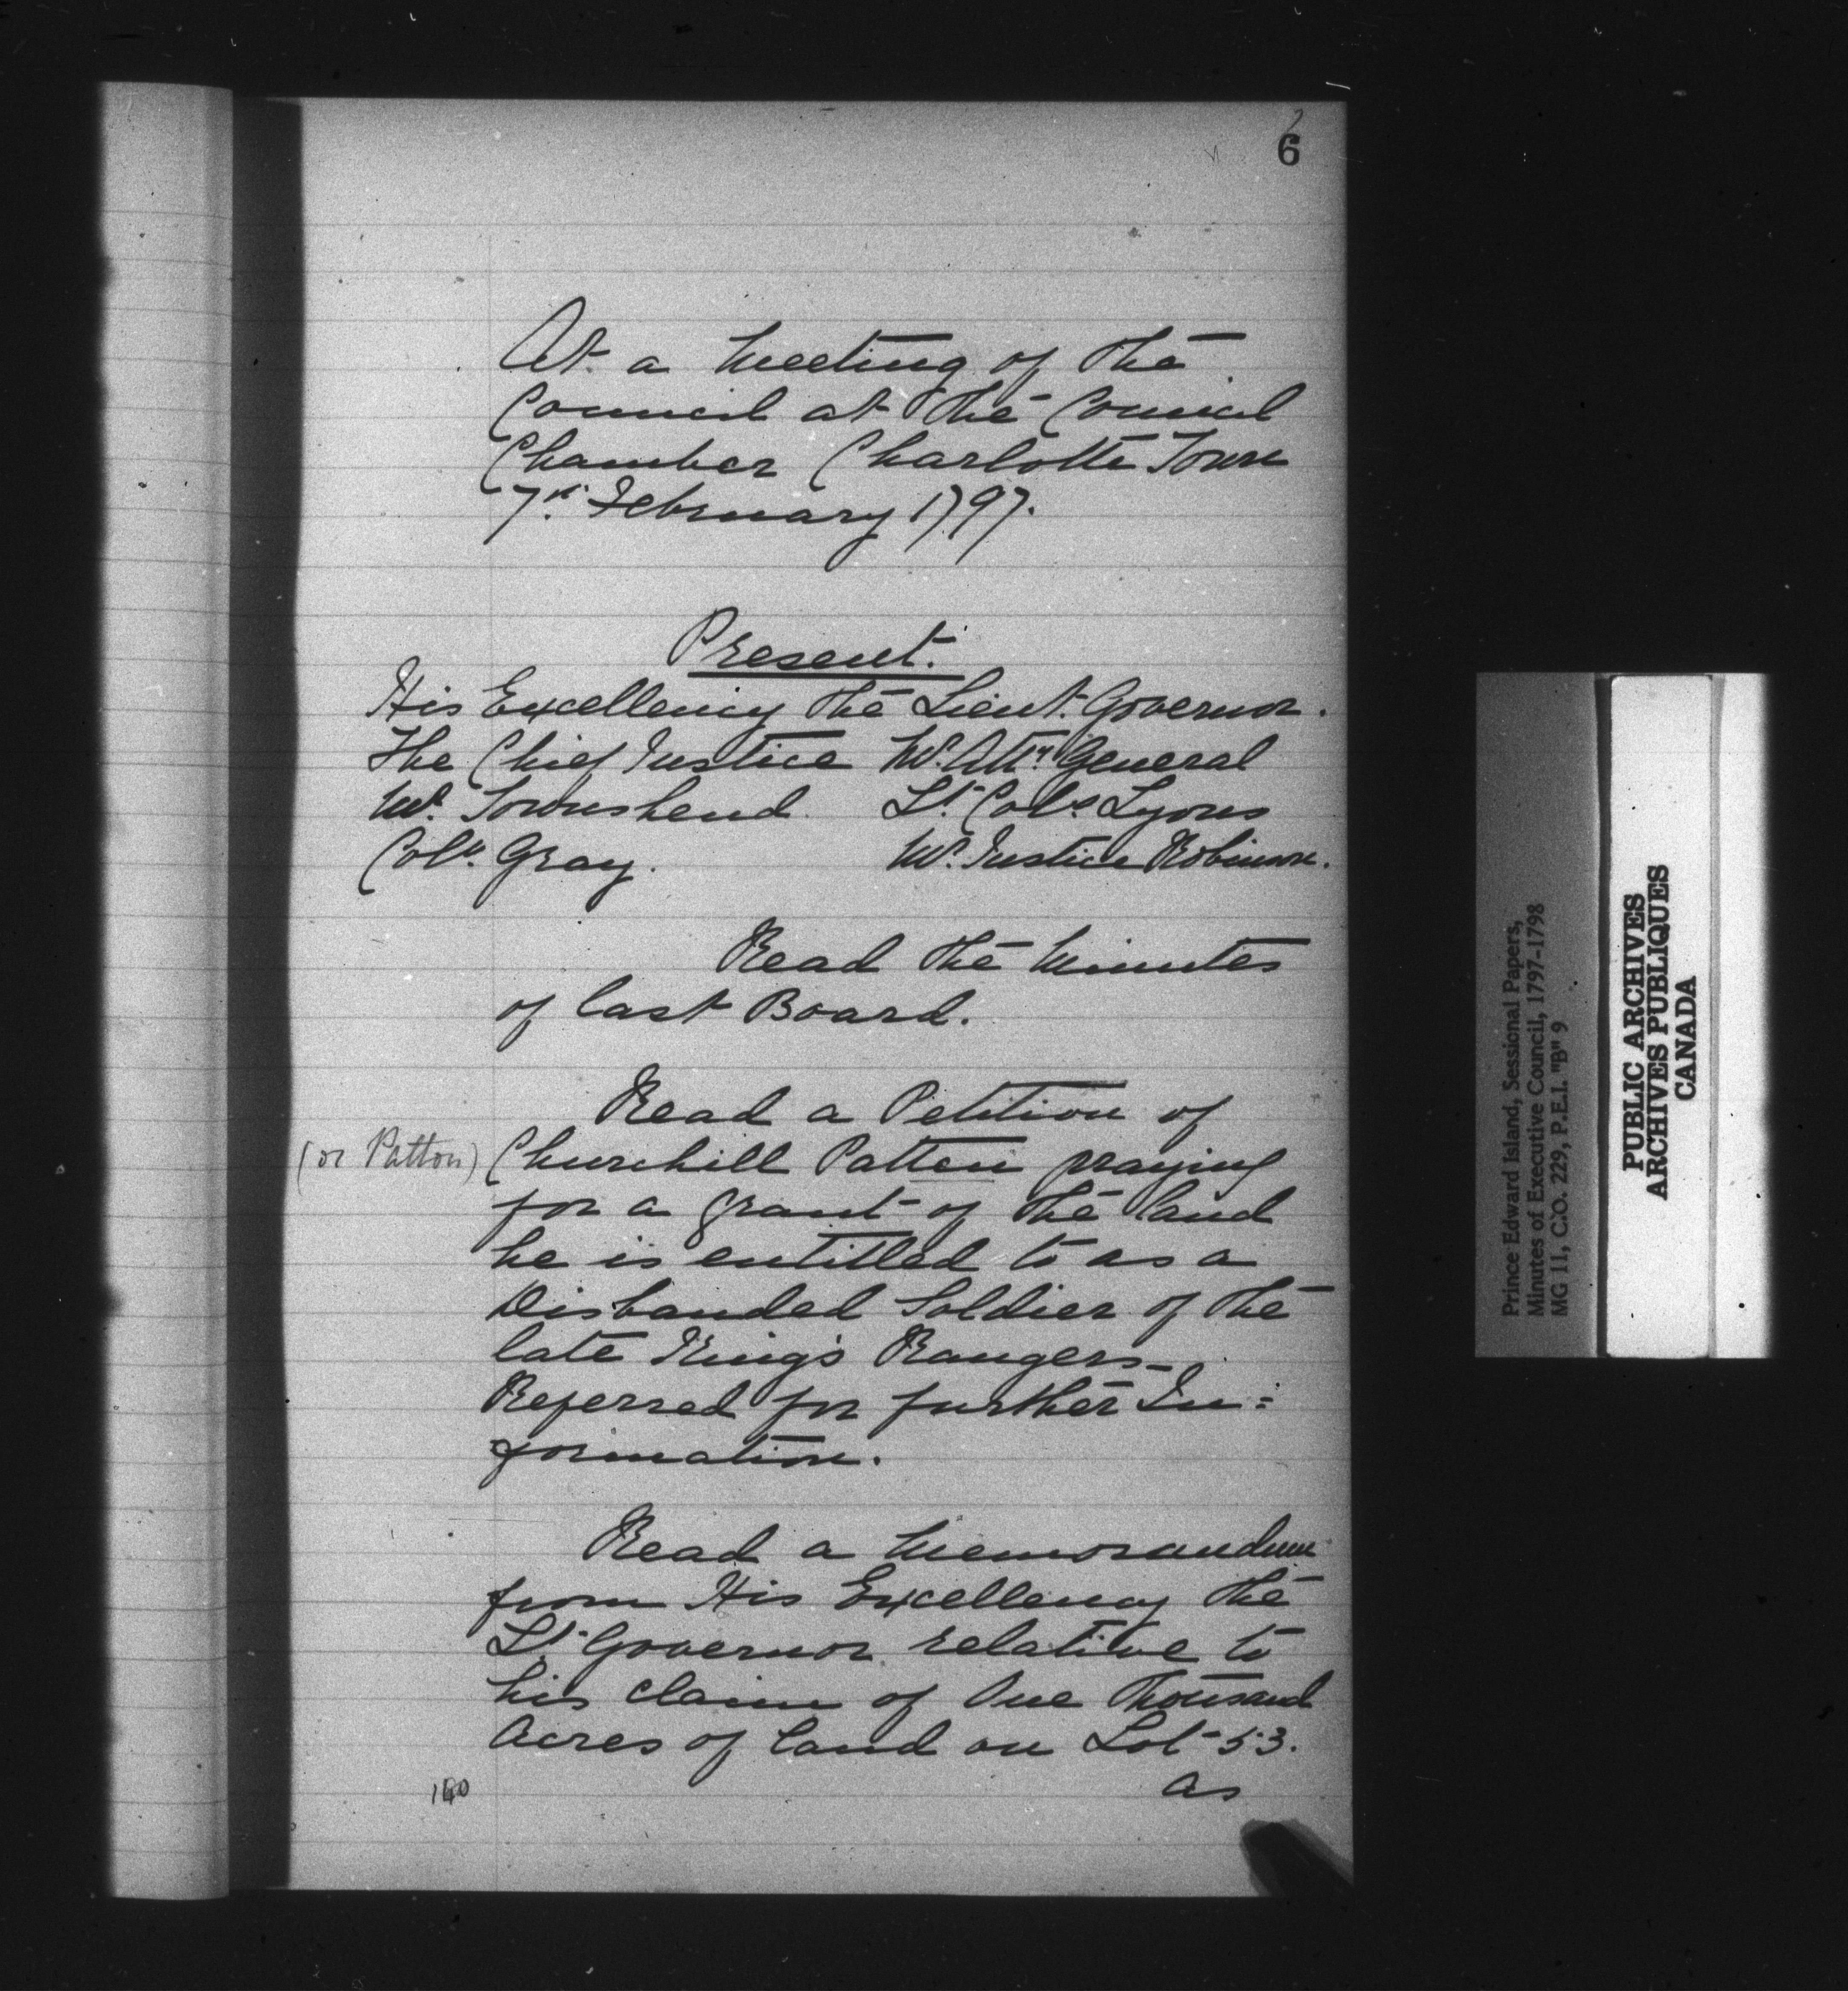 6
At a Meeting of the
Council at the Council
Chamber Charlotte Town
7th. February 1797.
Present.
His Excellency the Lieut. Governor.
The Chief Justice Mr. Atty. General
Mr. Townshend Lt. Col. Lyons
Coln. Gray. Mr. Justice Robinson.
Read the Minutes
of last Board.
Read a Petition of
(or Patton) Churchill Patten praying
for a grant of the land
he is entitled to as a
Disbanded Soldier of the
late King's Rangers_
Referred for further In=
formation.
Read a Memorandum
from His Excellency the
Lt. Governor relative to
his claim of One Thousand
Acres of land on Lot 53.
as
Prince Edward Island, Sessional Papers,
Minutes of Executive Council, 1797-1798
MG 11, C.O. 229, P.E.I. "B" 9
PUBLIC ARCHIVES
ARCHIVES PUBLIQUES
CANADA